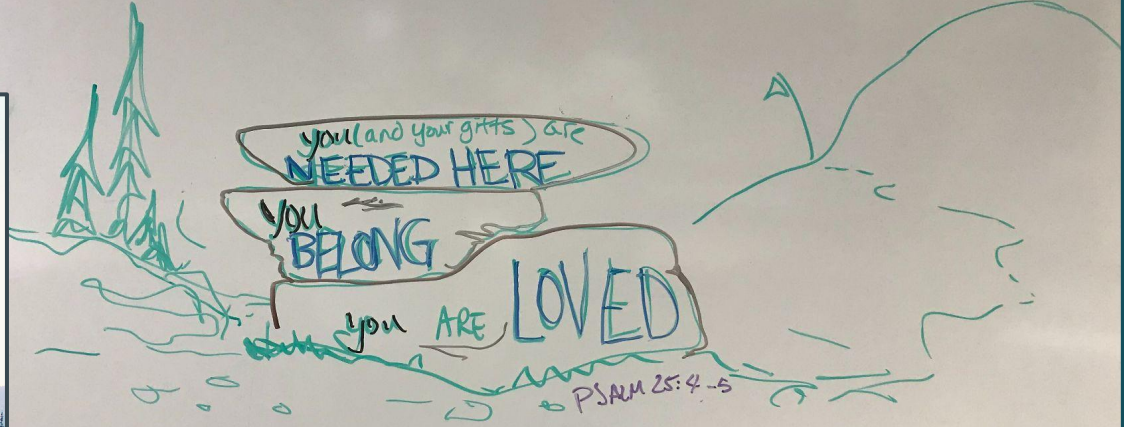 you (and your gifts) are
NEEDED HERE
you
BELONG
you ARE LOVED
PSALM 25:4-5